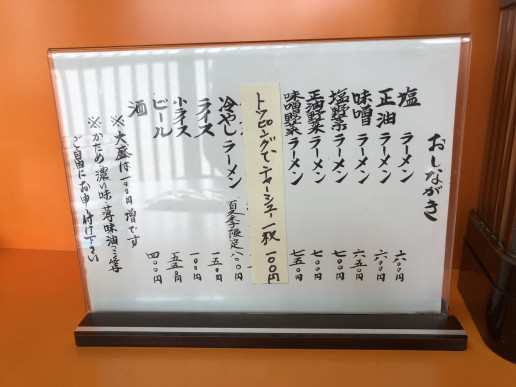 おしながき
塩ラーメン 六〇〇円
正油ラーメン 六〇〇円
味噌ラーメン 六五〇円
塩野菜ラーメン 七〇〇円
正油野菜ラーメン 七〇〇円
味噌野菜ラーメン 七五〇円
トッピングでチャーシュー一枚 一〇〇円
冷やしラーメン 夏季限定 八〇〇円
ライス 一五〇円
小ライス 一〇〇円
ビール 五五〇円
酒 四〇〇円
※大盛は一〇〇円増です
※かため濃い味、薄味油こい等
ご自由にお申し付け下さい